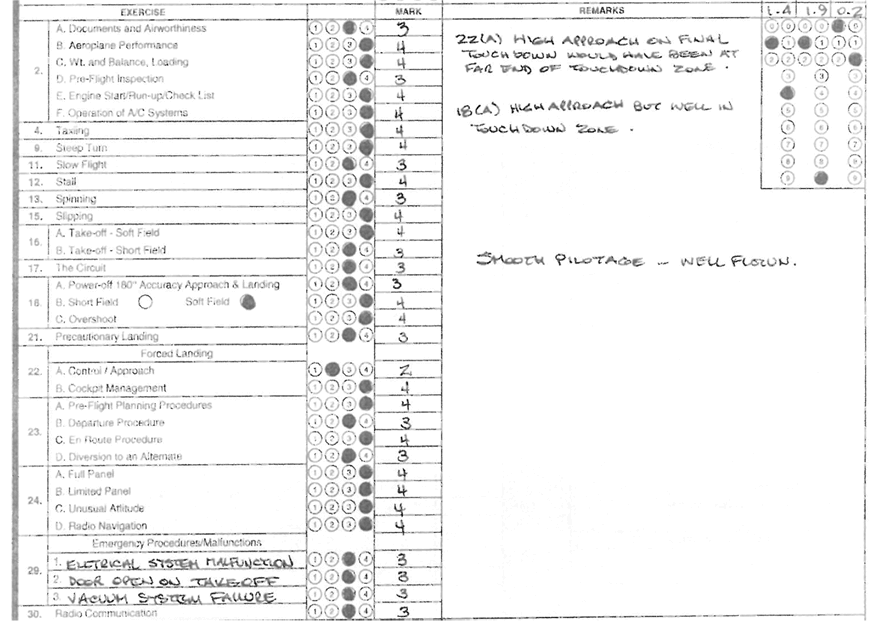 EXERCISE MARK REMARKS 1.4 1.9 0.2
2. A. Documents and Airworthiness 1 2 4 3
B. Aeroplane Performance 1 2 3 4
C. Wt. and Balance, Loading 1 2 3 4
D. Pre-Flight Inspection 1 2 4 3
E. Engine Start/Run-up/Check List 1 2 3 4
F. Operation of A/C Systems 1 2 3 4
4. Taxiing 1 2 3 4
9. Steep Turn 1 2 3 4
11. Slow Flight 1 2 4 3
12. Stall 1 2 3 4
13. Spinning 1 2 4 3
15. Slipping 1 2 3 4
16. A. Take-off - Soft Field 1 2 3 4
B. Take-off - Short Field 1 2 4 3
17. The Circuit 1 2 4 3
18. A. Power-off 180° Accuracy Approach & Landing 1 2 4 3
B. Short Field Soft Field 1 2 3 4
C. Overshoot 1 2 3 4
21. Precautionary Landing 1 2 4 3
Forced Landing
22. A. Control / Approach 1 3 4 2
B. Cockpit Management 1 2 3 4
23. A. Pre-Flight Planning Procedures 1 2 3 4
B. Departure Procedure 1 2 4 3
C. En Route Procedure 1 2 3 4
D. Diversion to an Alternate 1 2 4 3
24. A. Full Panel 1 2 3 4
B. Limited Panel 1 2 3 4
C. Unusual Attitude 1 2 3 4
D. Radio Navigation 1 2 3 4
Emergency Procedures/Malfunctions
29. 1. ELCTRICAL SYSTEM MALFUNCTION 1 2 4 3
2. DOOR OPEN ON TAKE-OFF 1 2 4 3
3. VACUUM SYSTEM FAILURE 1 2 4 3
30. Radio Communication 1 2 4 3
22(A) HIGH APPROACH ON FINAL
TOUCHDOWN WOULD HAVE BEEN AT
FAR END OF TOUCHDOWN ZONE.
18(A) HIGH APPROACH BUT WELL IN
TOUCHDOWN ZONE.
SMOOTH PILOTAGE - WELL FLOWN.
0 0
1 1 1
2 2
3 3 3
4 4
5 5 5
6 6 6
7 7 7
8 8 8
9 9